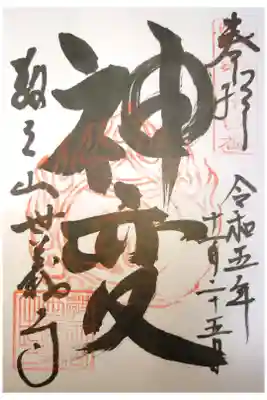 奉拝
令和五年
十一月二十五日
神変
教王山世義寺